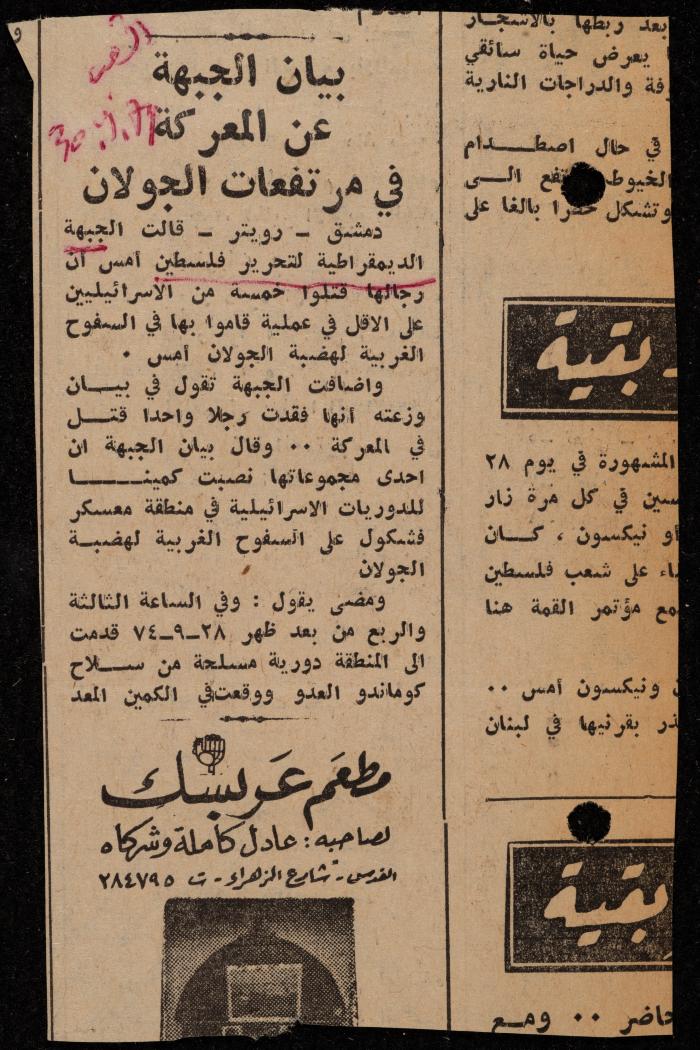 بيان الجبهة
عن المعركة
في مرتفعات الجولان
دمشق ـ رويتر ـ قالت الجبهة
الديمقراطية لتحرير فلسطين أمس ان
رجالها قتلوا خمسة من الاسرائيليين
على الاقل في عملية قاموا بها في السفوح
الغربية لهضبة الجولان أمس ٠
واضافت الجبهة تقول في بيــان
وزعته أنها فقدت رجلا واحدا قتــل
في المعركة ٠٠ وقال بيان الجبهة ان
احدى مجموعاتها نصبت كمينــــا
للدوريات الاسرائيلية في منطقة معسكر
فشكول على السفوح الغربية لهضبــة
الجولان
ومضى يقول : وفي الساعة الثالثة
والربع من بعد ظهر ٢٨ـ٩ـ٧٤ قدمت
الى المنطقة دورية مسلحة من ســلاح
كوماندو العدو ووقعت في الكمين المعد
مطعم عربسك
لصاحبه : عادل كاملة وشركاه
القدس - شارع الزهراء - ت ٢٨٤٧٩٥
بعد ربطها بالاشجار
يعرض حياة سائقي
والدراجات النارية
في حال اصطــــدام
الخيوط الــى
وتشكل خطرا بالغا على
بقية
المشهورة في يوم ٢٨
في كل مرة زار
أو نيكسون ، كــان
على شعب فلسطين
مؤتمر القمة هنا
ونيكسون أمس ٠٠
بقرنيها في لبنان
بقية
٠٠ ومــع